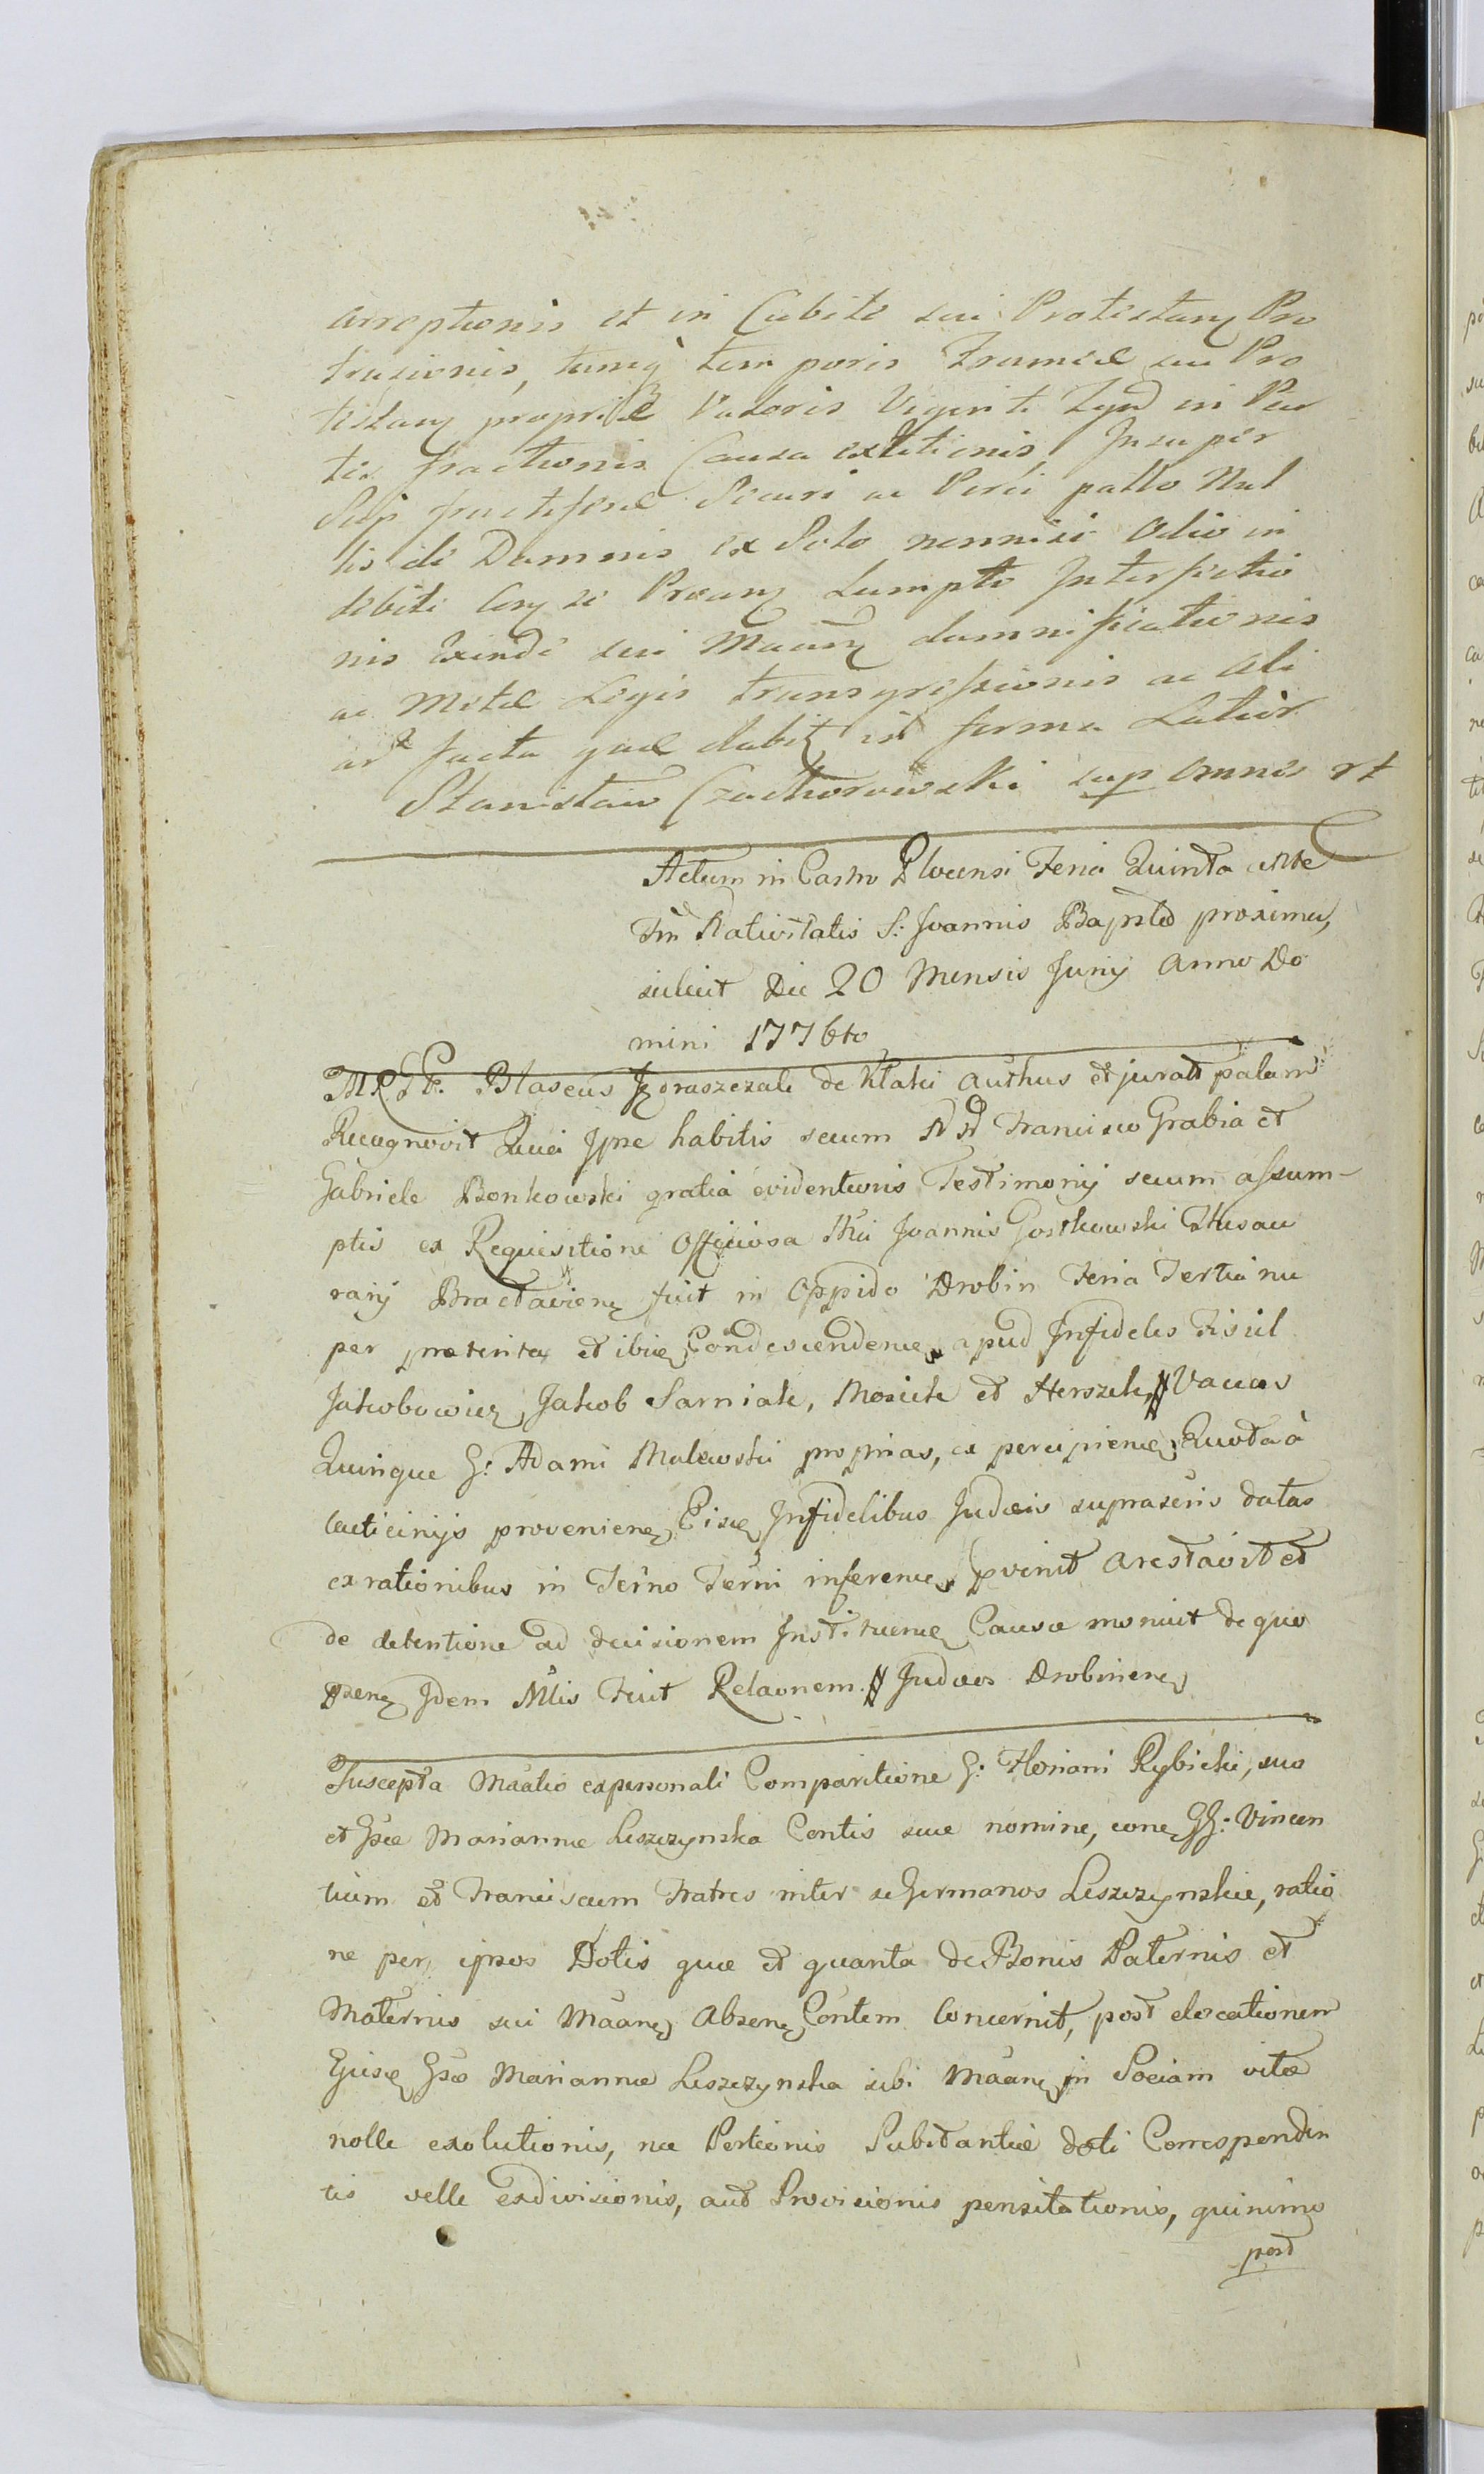 arreptionis et in Cubito sui Protestanz Pro
trusionis, tumq tem poris Frameæ suæ Pro
testanz propriæ Valoris Viginti Tynf in Par
tes fractionis Causa extitionis Insuper
fractifone Securi ac Porci pallo Mul
tis de Damnis ex Solo nonnisi Odio in
debite Conze Preanz Sumpto Interfectio
nis Exinde sui Maanz damnificationis
ac Metæ Legis transgressionis ac ali
ar facta quæ dabit in forma Latior
Stanisław Czachorowski sup omnes rt
Actum in Castro Plocensi Feria Quinta ante
Fm Nativitatis S: Joannis Baptæ proxima,
scilicet Die 20 Mensis Junij Anno Do
mini 1776to
Blaseus de Kłaki authus et jurat palam
Recognovit Quia Ipse habitis secum N N Francisco Grabia et
Gabriele Bonkowski gratia evidentioris Testimonij secum assum-
ptis ex Requisitione Officiosa Mci Joannis Gostkowski Thesau
rarij Bractavienz fuit in Oppido Drobin Feria Tertia nu
per præterita et ibiq Condescendenz apud Infideles Fisiel
Jakobowicz, Jakob Sarniak, Mosiek et Herszek # Vaccas
Quinque G: Adami Malewski proprias, ex percipienz Quota à
lacticinijs provenienz Eisq Infidelibus Judæis suprascris datas
ex rationibus in Termo Termi inferenz pvenit arestavit et
de detentione ad decisionem Instituenz Causæ monuit de quo
pzenz Idem Mlis Fecit Relaonem. # Judæos Drobinienz
Suscepta Maatio expersonali Comparitione G: Floriani Rybicki, suo
et Gsæ Mariannæ Leszczynska Contis suæ nomine, conz GG: Vincen
tium et Franciscum Fratres inter se Germanos Leszczynskie, ratio
ne per ipsos Dotis quæ et quanta de Bonis Paternis et
Maternis sui Maanz Absenz Contem Concernit, post elocationem
Ejusq Gsæ Mariannæ Leszczynska sibi Maanz in Sociam vitæ
nolle exolutionis, nec Portionis Substantiæ doti Correspondin
tis velle exdivisionis, aut Provisionis pensitationis, quinimo
post